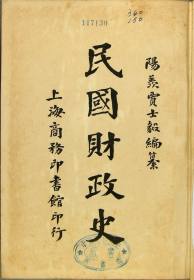 117130
360
180
陽羨賈士毅編纂
民國財政史
上海商務印書館印行